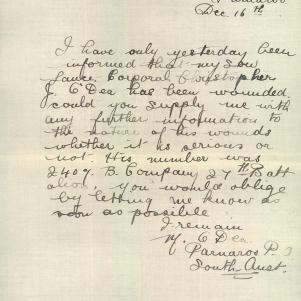 Parnaroo
Dec 16th
I have only yesterday been
informed that my son
Lance Corporal Christopher
J. O Dea has been wounded
could you supply me with
any further information to
the nature of his wounds
whether it is serious or
not. His number was
2407. B. Company 27th Batt
alion. You would oblige
by letting me know as
soon as possible
I remain
M. O Dea
Parnaroo P. O
South Aust.